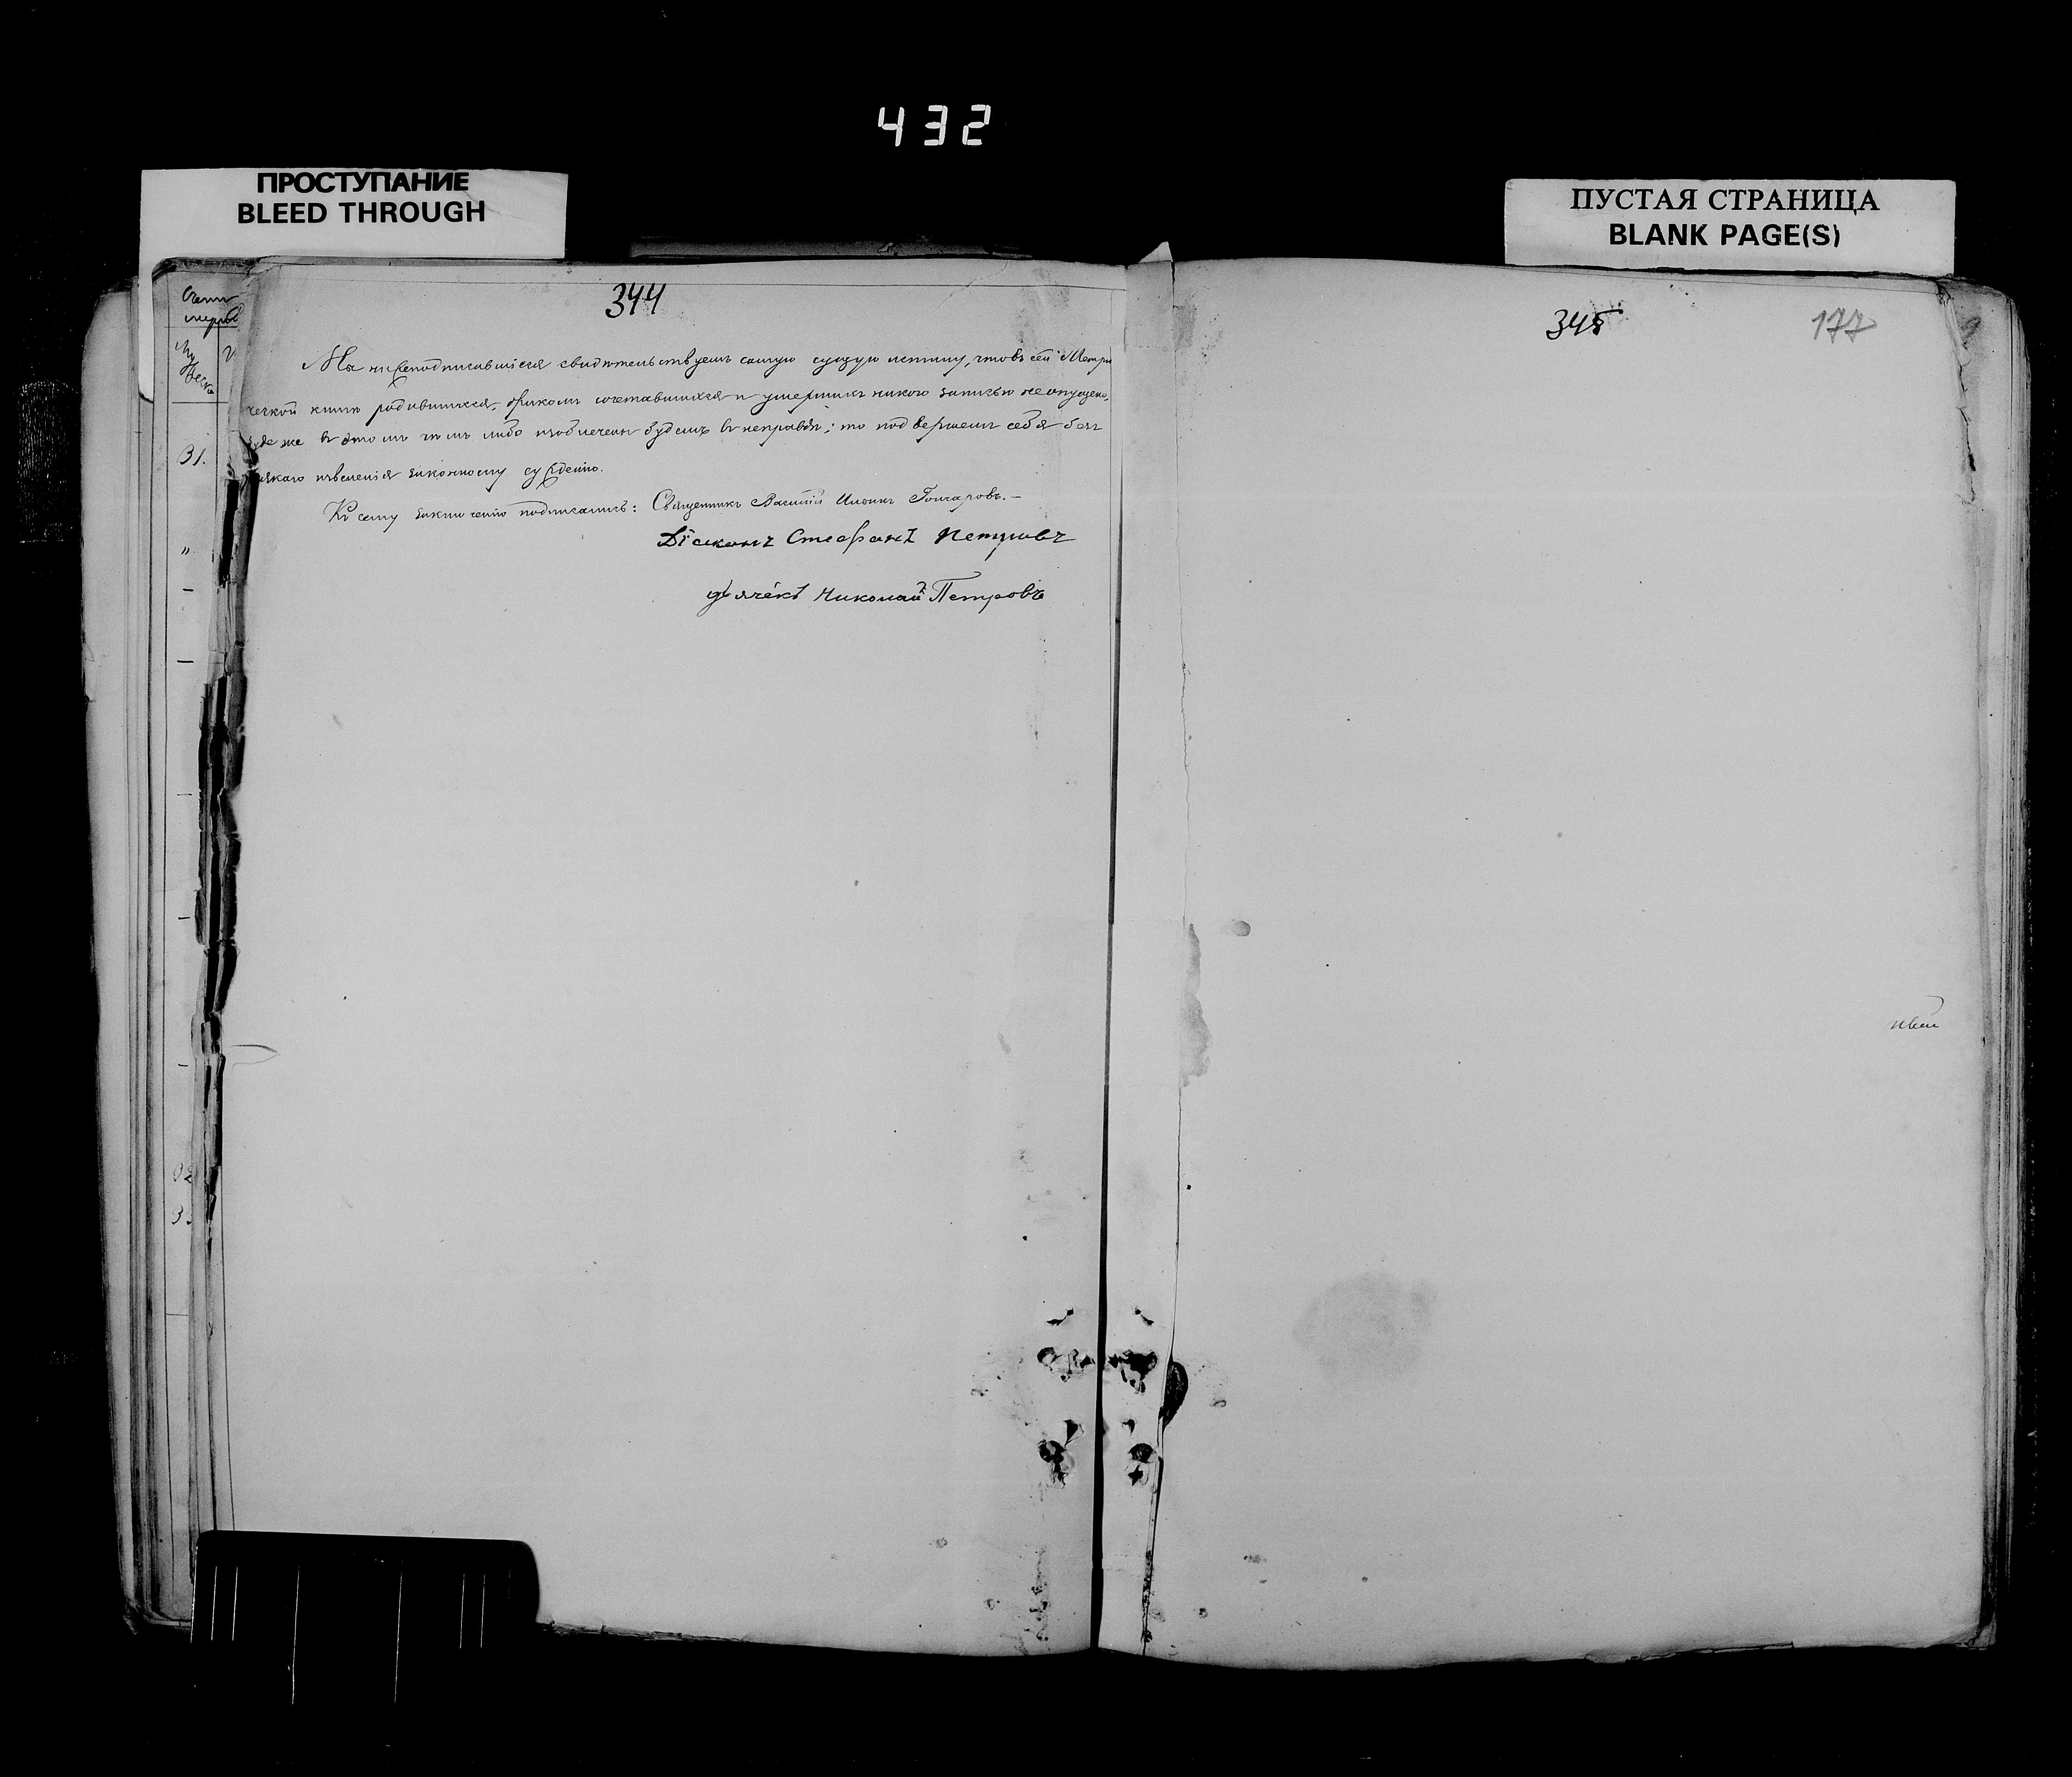 432
ПРОСТУПАНИЕ
BLEED THROUGH
ПУСТАЯ СТРАНИЦА
BLANK PAGE(S)
344
Мы нижеподписавшіеся свидѣтельствуемъ самую сущую истину, что въ сей Метри
ческой книгѣ родившихся, бракомъ сочетавшихся и умершихъ никого записью не опущено,
буде же въ этомъ чемъ либо изобличены будемъ въ неправдѣ; то подвержемъ себя безъ
всякаго извиненія законному сужденію.
Къ сему заключенію подписались: Священникъ Василій Гончаровъ.—
Діаконъ Стефанъ Петровъ
дьячекъ Николай Петровъ
31.
345
177